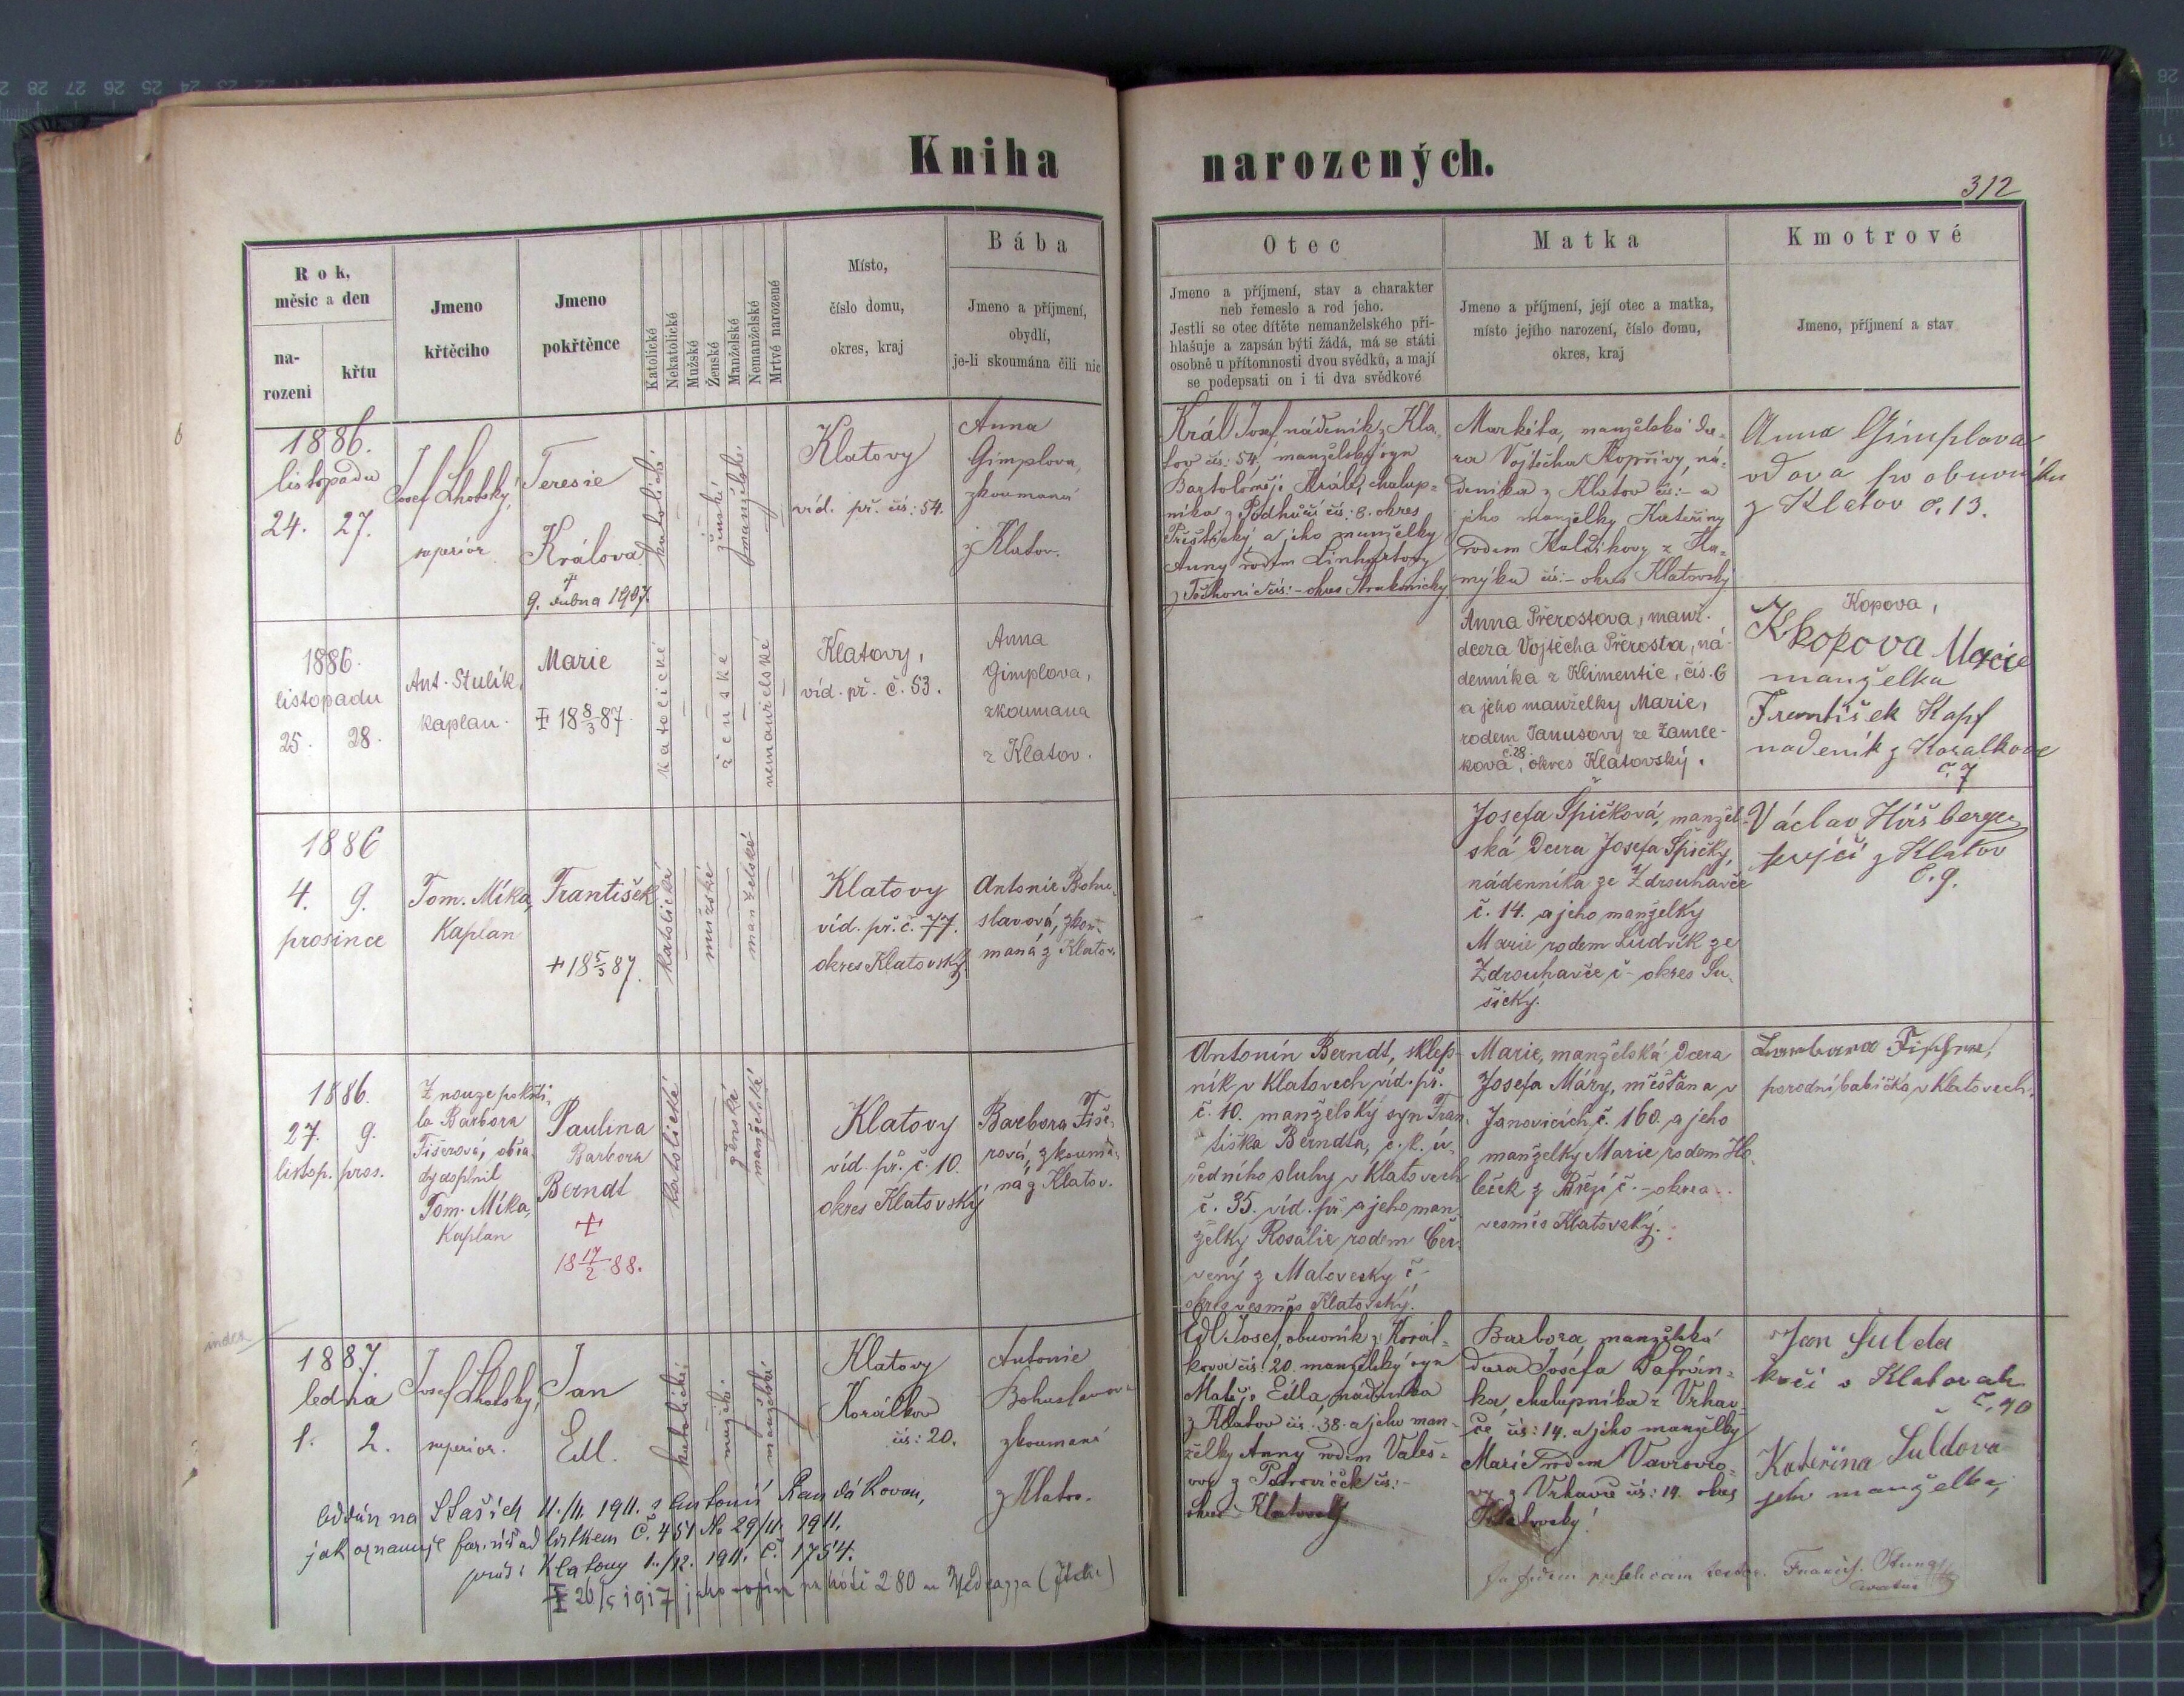 Kniha narozených.
312
Rok,
měsíc a den
na-
rozeni
křtu
Jmeno
křtěcího
Jmeno
pokřtěnce
Katolické
Nekatolické
Mužské
Ženské
Manželské
Nemanželské
Mrtvé narozené
Místo,
číslo domu,
okres, kraj
Bába
Jmeno a příjmení,
obydlí,
je-li skoumána čili nic
Otec
Jmeno a příjmení, stav a charakter
neb řemeslo a rod jeho.
Jestli se otec dítěte nemanželského při-
hlašuje a zapsán býti žádá, má se státi
osobně u přítomnosti dvou svědků, a mají
se podepsati on i ti dva svědkové
Matka
Jmeno a příjmení, její otec a matka,
místo jejího narození, číslo domu,
okres, kraj
Kmotrové
Jmeno, příjmení a stav
1886.
listopadu
24. 27.
Josef Lhotský,
superior
Teresie
Králova
†
9. dubna 1907.
katolické
ženské
manželské
Klatovy
víd. př. čís: 54.
Anna
Gimplova,
zkoumaná
z Klatov.
Král Josef nádeník z Kla-
tov čís: 54, manželský syn
Bartoloměje Krále, chalup-
níka z Podhůří čís: 8. okres
Přeštický a jeho manželky
Anny rodem Linhartovy
čís: - okres Strakonický
Markéta, manželská dce-
ra Vojtěcha Kopřivy, ná-
deníka z Klatov čís: - a
jeho manželky Kateřiny
rodem z Kla-
mýka čís: - okres Klatovský
Anna Gimplova
vdova po obuvníku
z Klatov č. 13.
1886.
listopadu
25. 28.
Ant. Stulík,
kaplan.
Marie
‡ 18 8/3 87.
katolické
ženské
nemanželské
Klatovy,
víd. př. č. 53.
Anna
Gimplova,
zkoumana
z Klatov.
Anna Přerostova, manž.
dcera Vojtěcha Přerosta, ná-
denníka z Klimentic, čís. 6
a jeho manželky Marie,
rodem Janusovy ze Zamle-
kova č. 28, okres Klatovský.
Kopova,
Kkopova Marie
manželka
František Kopf
nadeník z Koralkova
č. 7
1886
4. 9.
prosince
Tom. Míka,
Kaplan
František
+ 18 5/3 87.
katolické
mužské
manželské
Klatovy
víd. př. č. 77.
okres Klatovský.
Antonie Bohu-
slavová, zkou-
maná z Klatov.
Josefa Špičková, manžel-
ská dcera Josefa Špičky,
nádenníka ze Zdrouhavče
č. 14. a jeho manželky
Marie rodem Ludvík ze
Zdrouhavče č - okres Su-
šický.
Václav Hiršberger
krejčí z Klatov
č. 9.
1886.
27. 9.
listop. pros.
Z nouze pokřti-
la Barbora
Fišerová, obřa-
dy doplnil
Tom. Míka,
Kaplan
Paulina
Barbora
Berndt
+
18 17/2 88.
katolické
ženské
manželské
Klatovy
víd. př. č. 10.
okres Klatovský
Barbora Fiše-
rová, zkouma-
ná z Klatov.
Antonín Berndt, sklep-
ník v Klatovech víd. př.
č. 10. manželský syn Fran-
tiška Berndta, c. k. ú-
ředního sluhy v Klatovech
č. 35. víd. př. a jeho man-
želky Rosalie rodem Čer-
vený z Malovesky č -
okres vesměs Klatovský.
Marie, manželská dcera
Josefa Máry, měšťana v
Janovicích č. 160. a jeho
manželky Marie rodem Ho-
leček z Březí č. - okres
vesměs Klatovský.
Barbara Fischer,
porodní babička v Klatovech.
index
1887
ledna
1. 2.
Josef Lhotský,
superior.
Jan
Edl.
katolické
mužské
manželské
Klatovy
Korálkov
čís: 20.
Antonie
Bohuslavova
zkoumaná
z Klatov.
Edl Josef, obuvník z Korál-
kova čís. 20. manželský syn
Matěje Edla, nádeníka
z Klatov čís. 38. a jeho man-
želky Anny rodem Valeš-
ovy z Petroviček čís: -
okres Klatovský.
Barbora manželská
dcera Josefa Šafrán-
ka, chalupníka z Vrhav-
če čís: 14. a jeho manželky
Marie rodem Vavrovco-
vy z Vrhavče čís: 19. okres
Klatovský.
Jan Šulda
kočí v Klatovech
č. 40
Kateřina Šuldova
jeho manželka
oddán na Staších 11./11. 1911. s Antonií Randákovou,
jak oznamuje far. úřad lístkem č. 451 29/11. 1911.
praes: Klatovy 1./12. 1911. č. 1754.
‡ 26/5 1917 jako vojín na kótě 280 u Medeazza (Italie)